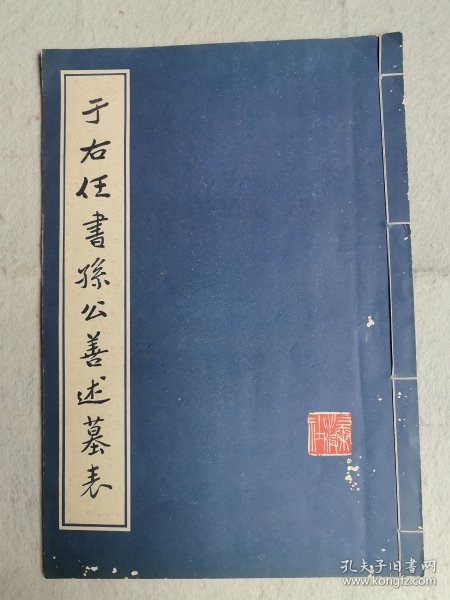 于右任書孫公善述墓表
孔夫子旧书网
www.kongfz.com